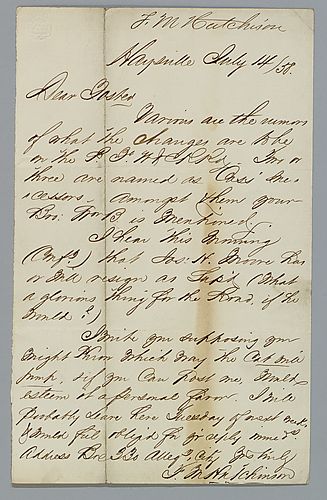 F. M. Hutchison
Haysville July 14/58.
Dear Foster
Various are the rumors
of what the changes are to be
on the P. Ft. W & C R. Rd. Two or
three are named as Cass' Suc-
cessors - amongst them your
Bro: is mentioned.
I hear this morning
(Conf'l) that Jos: H. Moore has
or will resign as Sup't (What
a glorious thing for the Road, if he
would?)
I write you supposing you
might know which way the Cat will
jump, & if you can post me, I will
esteem it a personal favor. I will
probably leave here Tuesday of next week,
& would feel oblig'd for yr reply
Address Box 230 Alleg'y City Yrs truly
F. M. Hutchinson